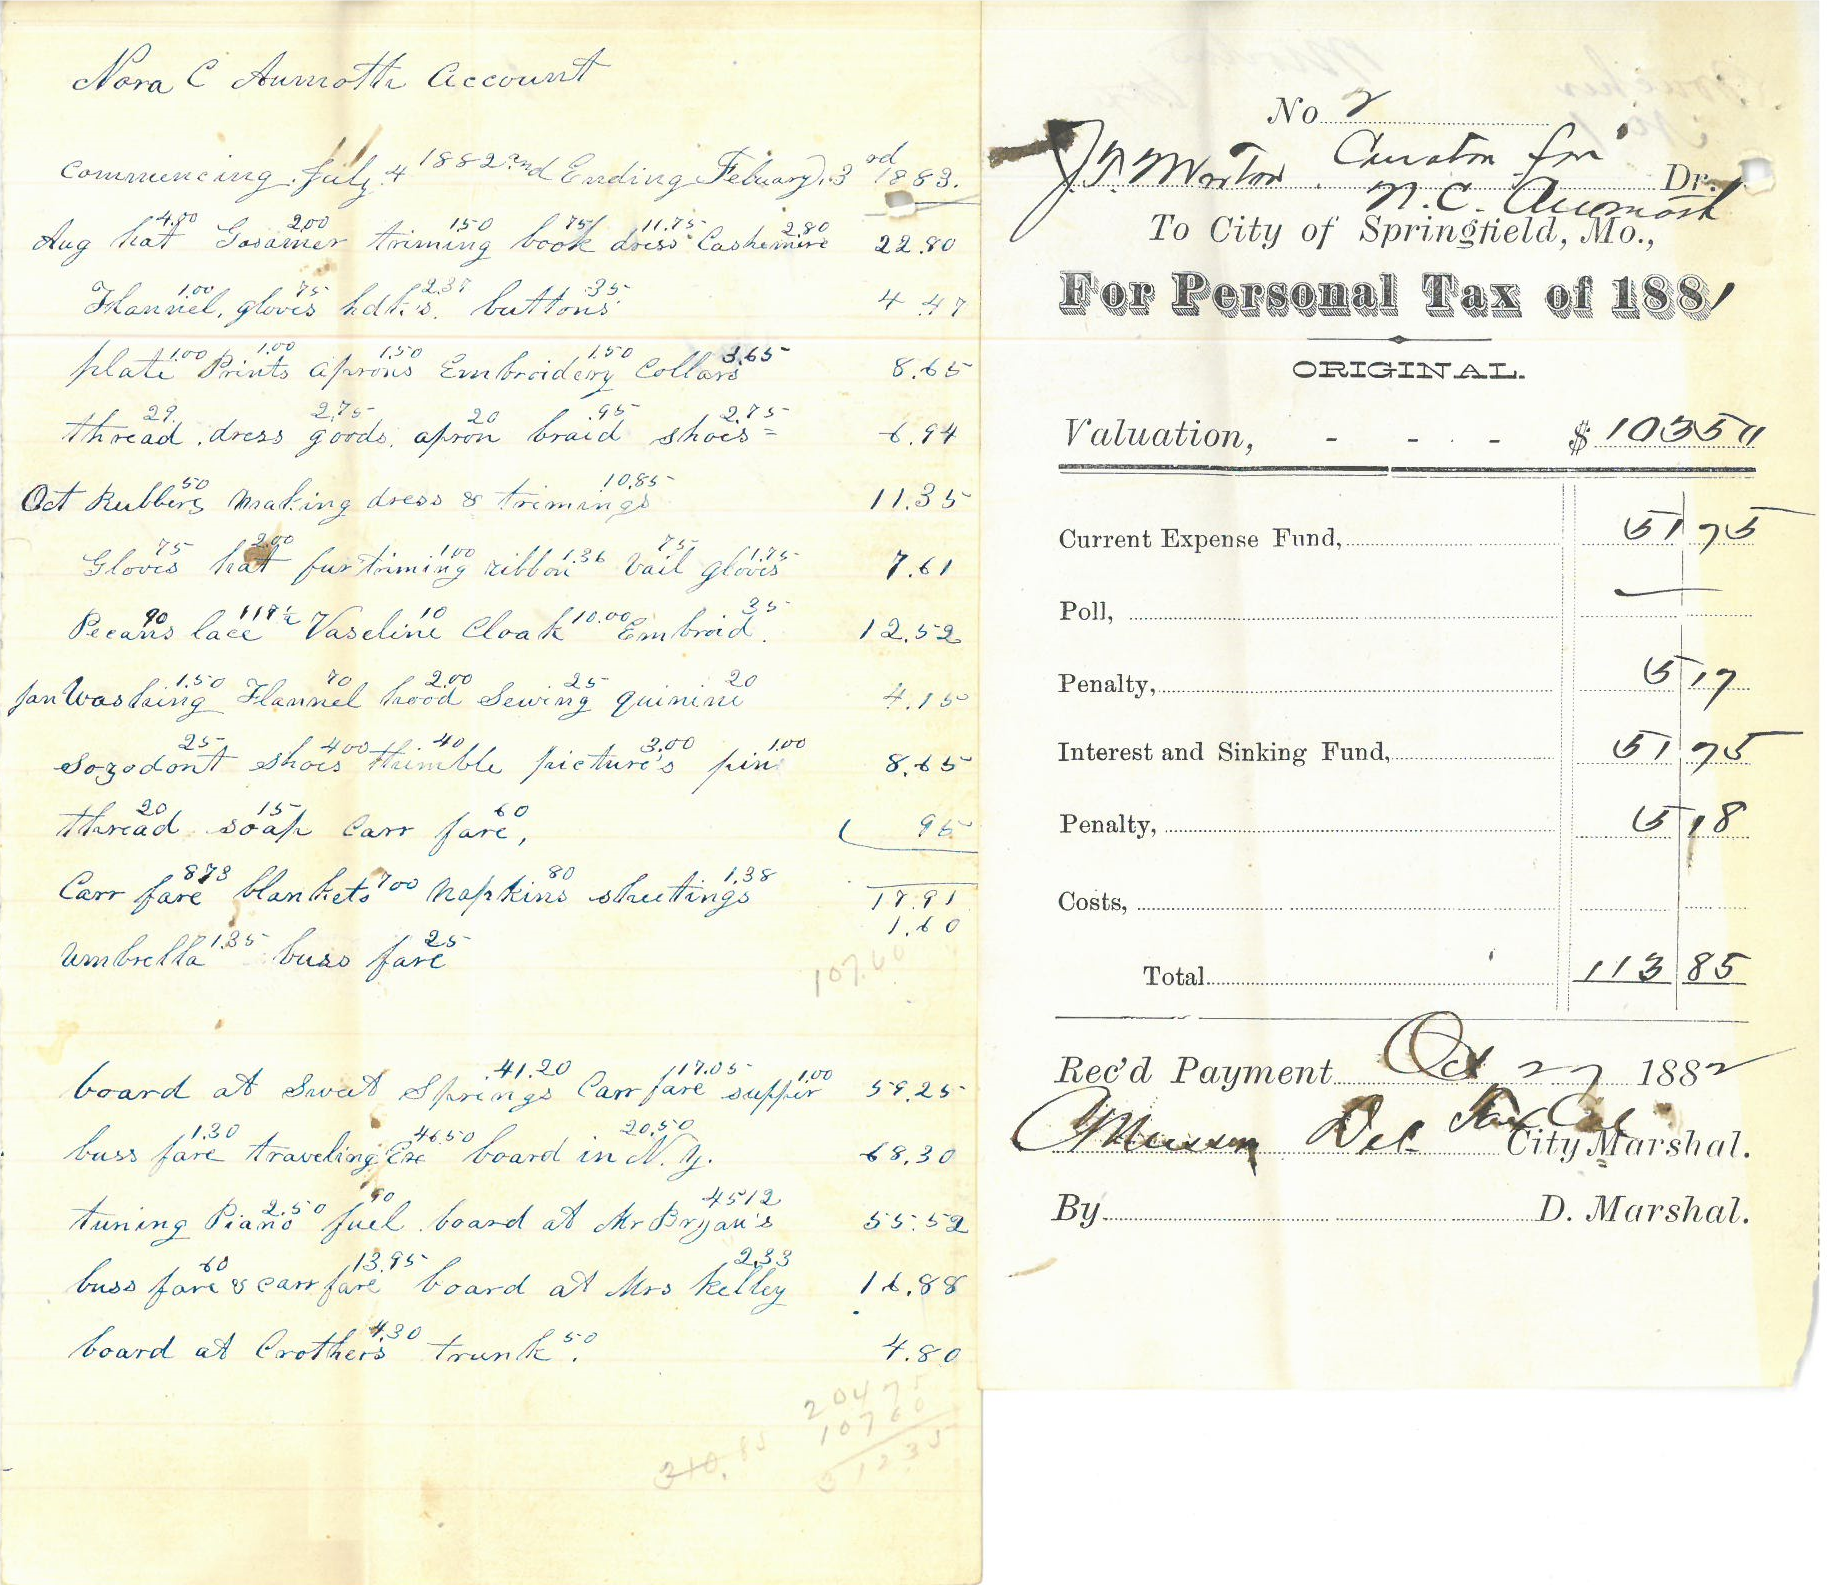 Nora C Aumoth Account
Commencing July 4 1882 and Ending Febuary 3rd 1883.
4.00 2.00 1.50 75 11.75 2.80
Aug hat Gosamer triming book dress Cashemire 22.80
1.00 75 2.37 35
Flannel, gloves hdk's. buttons 4.47
1.00 1.00 1.50 1.50 3.65
plate Prints aprons Embroidery Collars 8.65
29 2.75 20 .95 2.75
thread. dress goods. apron braid shoes = 6.94
50 10.85
Oct Rubbers making dress & trimings 11.35
75 2.00 1.00 1.36 75 1.75
Gloves hat fur triming ribbon Vail gloves 7.61
90 117½ 10 10.00 35
Pecans lace Vaseline Cloak Embroid. 12.52
1.50 70 2.00 25 20
Jan Washing Flannel hood Sewing quinine 4.15
25 400 40 3.00 1.00
Sozodont shoes thimble picture's pin 8.65
20 15 60
thread soap Carr fare, 95
873 700 80 1.38
Carr fare blankets napkins sheetings 17.91
1.60
1.35 25
umbrella buss fare
107.60
41.20 17.05 1.00
board at Sweet Springs Carr fare supper 59.25
1.30 46.50 20.50
buss fare traveling Exe board in N. Y. 68.30
2.50 90 4512
tuning Piano fuel board at Mr Bryan's 55.52
60 13.95 2.33
buss fare & carr fare board at Mrs Kelley 16.88
4.30 50
board at Crothers trunk. 4.80
20475
10760
31235
310.85
No 2
J. T. Morton Curator for
N. C. Aumoth Dr.
To City of Springfield, Mo.,
For Personal Tax of 1881
ORIGINAL.
Valuation, - - - $ 10350
Current Expense Fund, 51 75
Poll, —
Penalty, 5 17
Interest and Sinking Fund, 51 75
Penalty, 5 18
Costs,
Total 113 85
Rec'd Payment Oct 27 1882
Del Tax Col
City Marshal.
By D. Marshal.